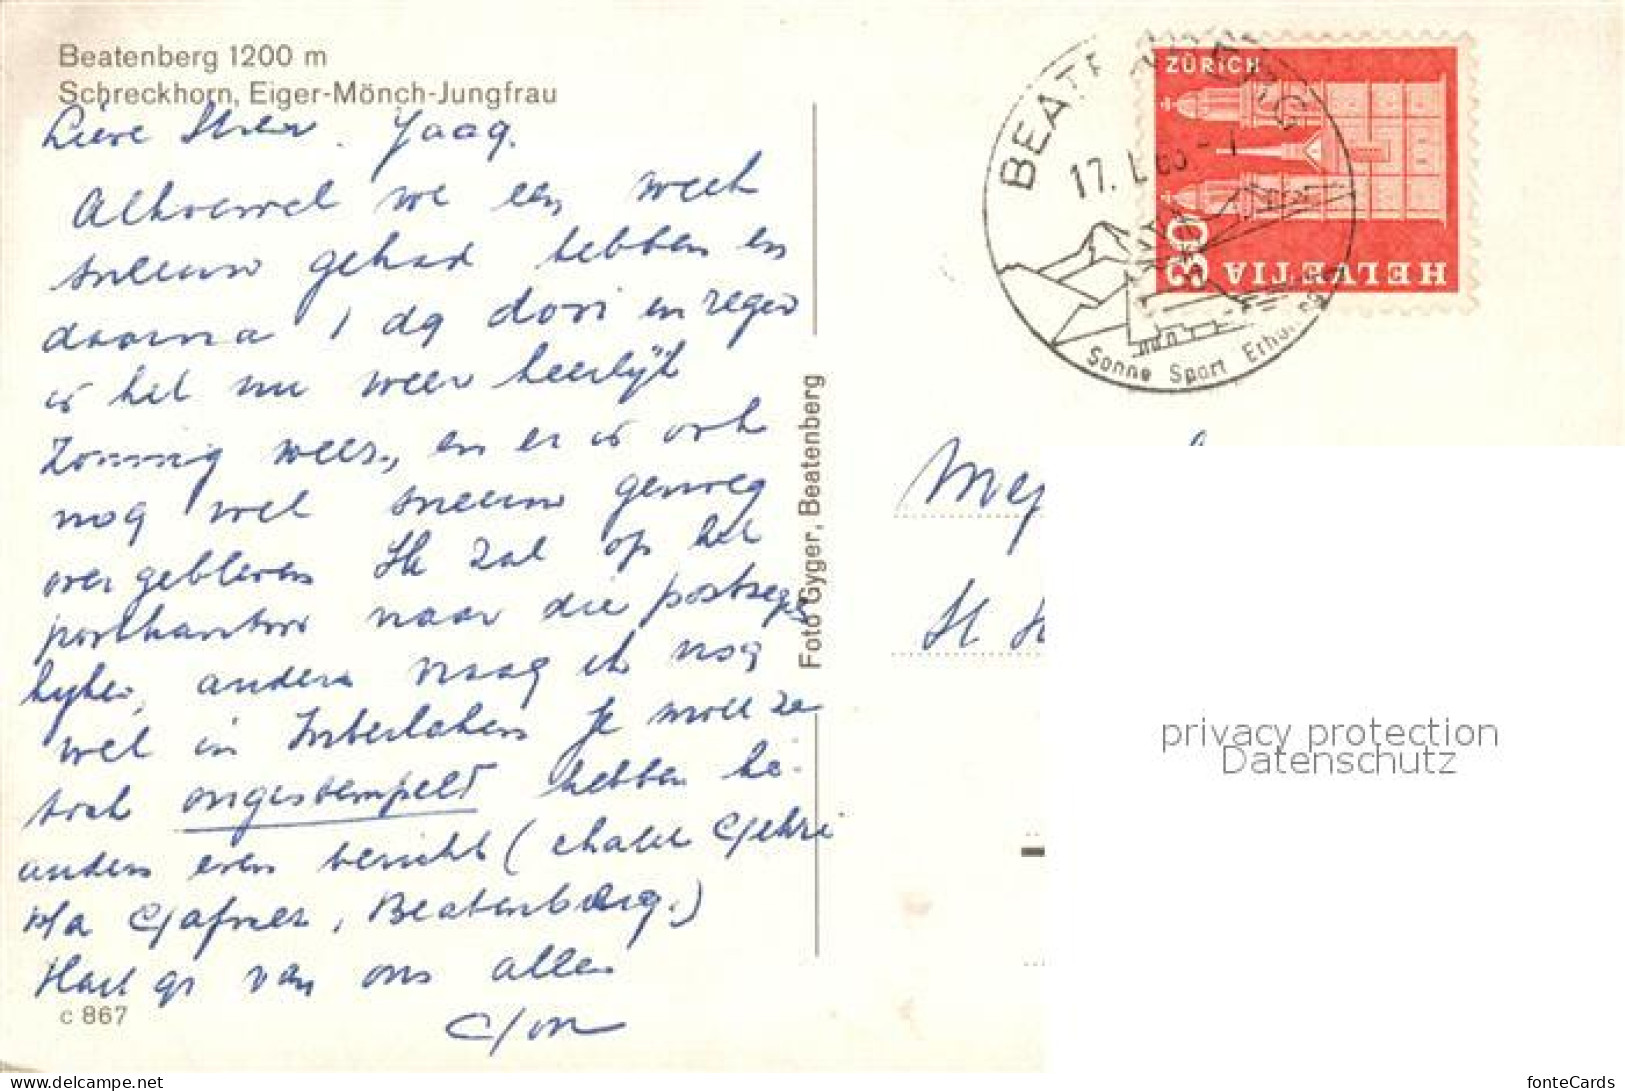 Beatenberg 1200 m
Schreckhorn, Eiger-Mönch-Jungfrau
Lieve Jaag.
Alhoewel we een week
sneeuw gehad hebben en
daarna 1 dag dooi en regen
is het nu weer heerlijk
zonnig weer, en er is ook
nog wel sneeuw genoeg
over gebleven Ik zal op het
postkantoor naar die postzegels
kijken, anders vraag ik nog
wel in Interlaken Je wou ze
toch ongestempeld hebben hè.
anders even bericht (chalet
p/a Beatenberg.)
Hart gr van ons allen
c 867
Foto Gyger, Beatenberg
BEATENBERG
17. I.
Sonne Sport
ZÜRICH
30
HELVETIA
privacy protection
Datenschutz
delcampe.net
fonteCards